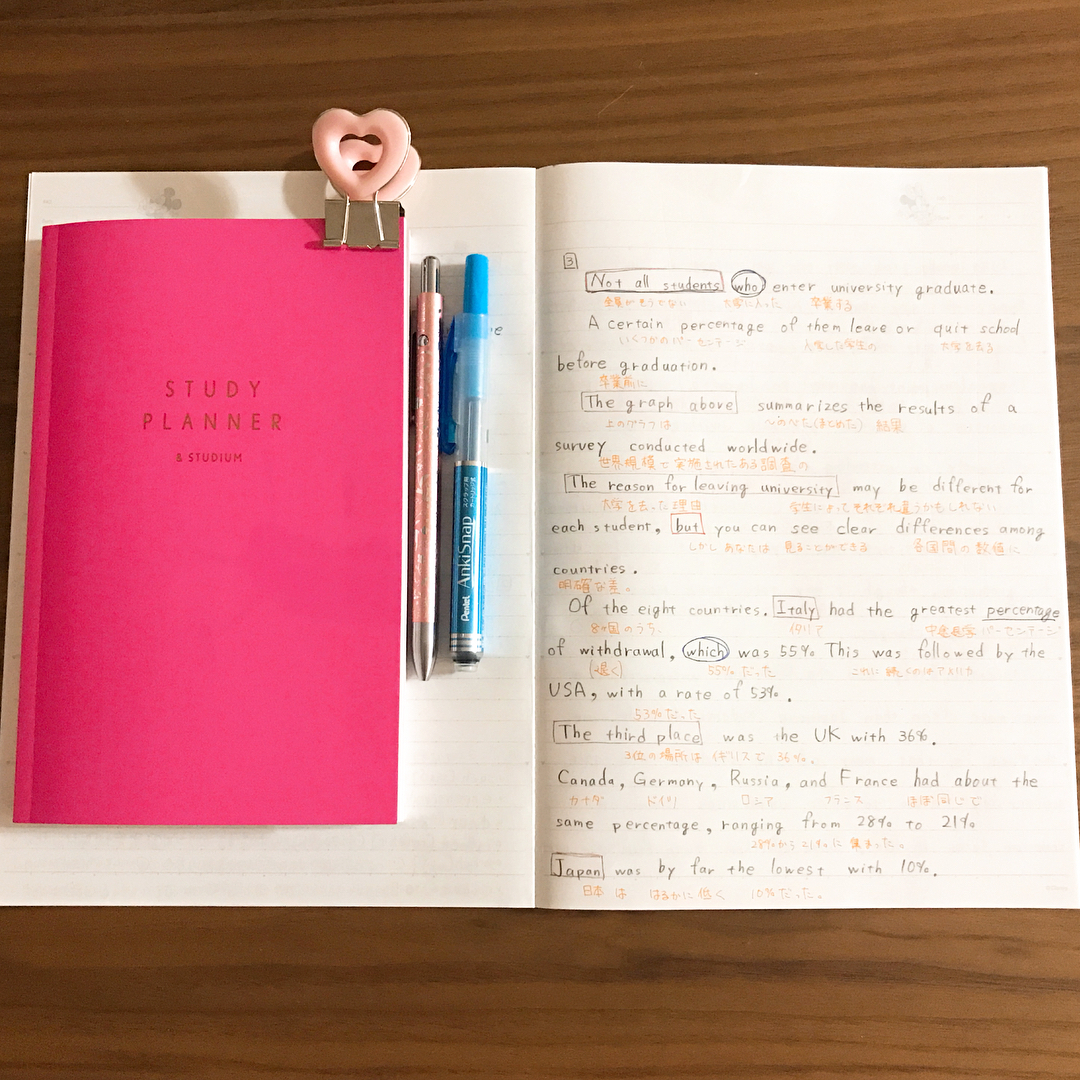 STUDY
PLANNER
& STUDIUM
Pentel AnkiSnap
3
Not all students who enter university graduate.
全員がそうでない 大学に入った 卒業する
A certain percentage of them leave or quit school
いくつかのパーセンテージ 入学した学生の 大学を去る
before graduation.
卒業前に
The graph above summarizes the results of a
上のグラフは 〜のべた(まとめた) 結果
survey conducted worldwide.
世界規模で実施されたある調査の
The reason for leaving university may be different for
大学を去った理由 学生によってそれぞれ違うかもしれない
each student, but you can see clear differences among
しかし あなたは 見ることができる 各国間の数値に
countries.
明確な差。
Of the eight countries. Italy had the greatest percentage
8ヶ国のうち、 イタリア 中途退学パーセンテージ
of withdrawal, which was 55% This was followed by the
(退く) 55%だった これに続くのはアメリカ
USA, with a rate of 53%.
53%だった
The third place was the UK with 36%.
3位の場所は イギリスで 36%.
Canada, Germany, Russia, and France had about the
カナダ ドイツ ロシア フランス ほぼ同じで
same percentage, ranging from 28% to 21%
28%から21%に集まった。
Japan was by far the lowest with 10%.
日本は はるかに低く 10%だった。